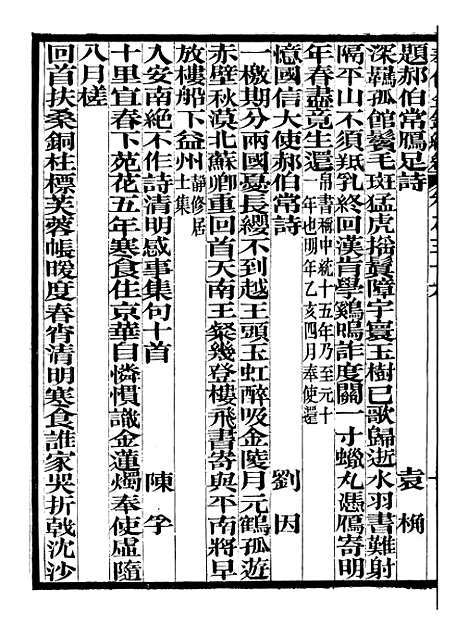 題郝伯常鴈足詩　袁桷
深羈孤館鬢毛斑猛虎揩鬚障宇寰玉樹已歌歸逝水羽書難射
隔平山不須羝乳終回漢肯學鷄鳴詐度關一寸蠟丸憑鴈寄明
年春盡竟生還帛書稱中統十五年乃至元十一年也明年乙亥四月奉使還
憶國信大使郝伯常詩　劉因
一檄期分兩國憂長纓不到越王頭玉虹醉吸金陵月元鶴孤遊
赤壁秋漠北蘇卿重回首天南王粲幾登樓飛書寄與平南將早
放樓船下益州靜修居士集
入安南絕不作詩清明感事集句十首　陳孚
十里宜春下苑花五年寒食住京華自憐慣識金蓮燭奉使虛隨
八月槎
回首扶桑銅柱標芙蓉帳暖度春宵清明寒食誰家哭折戟沈沙